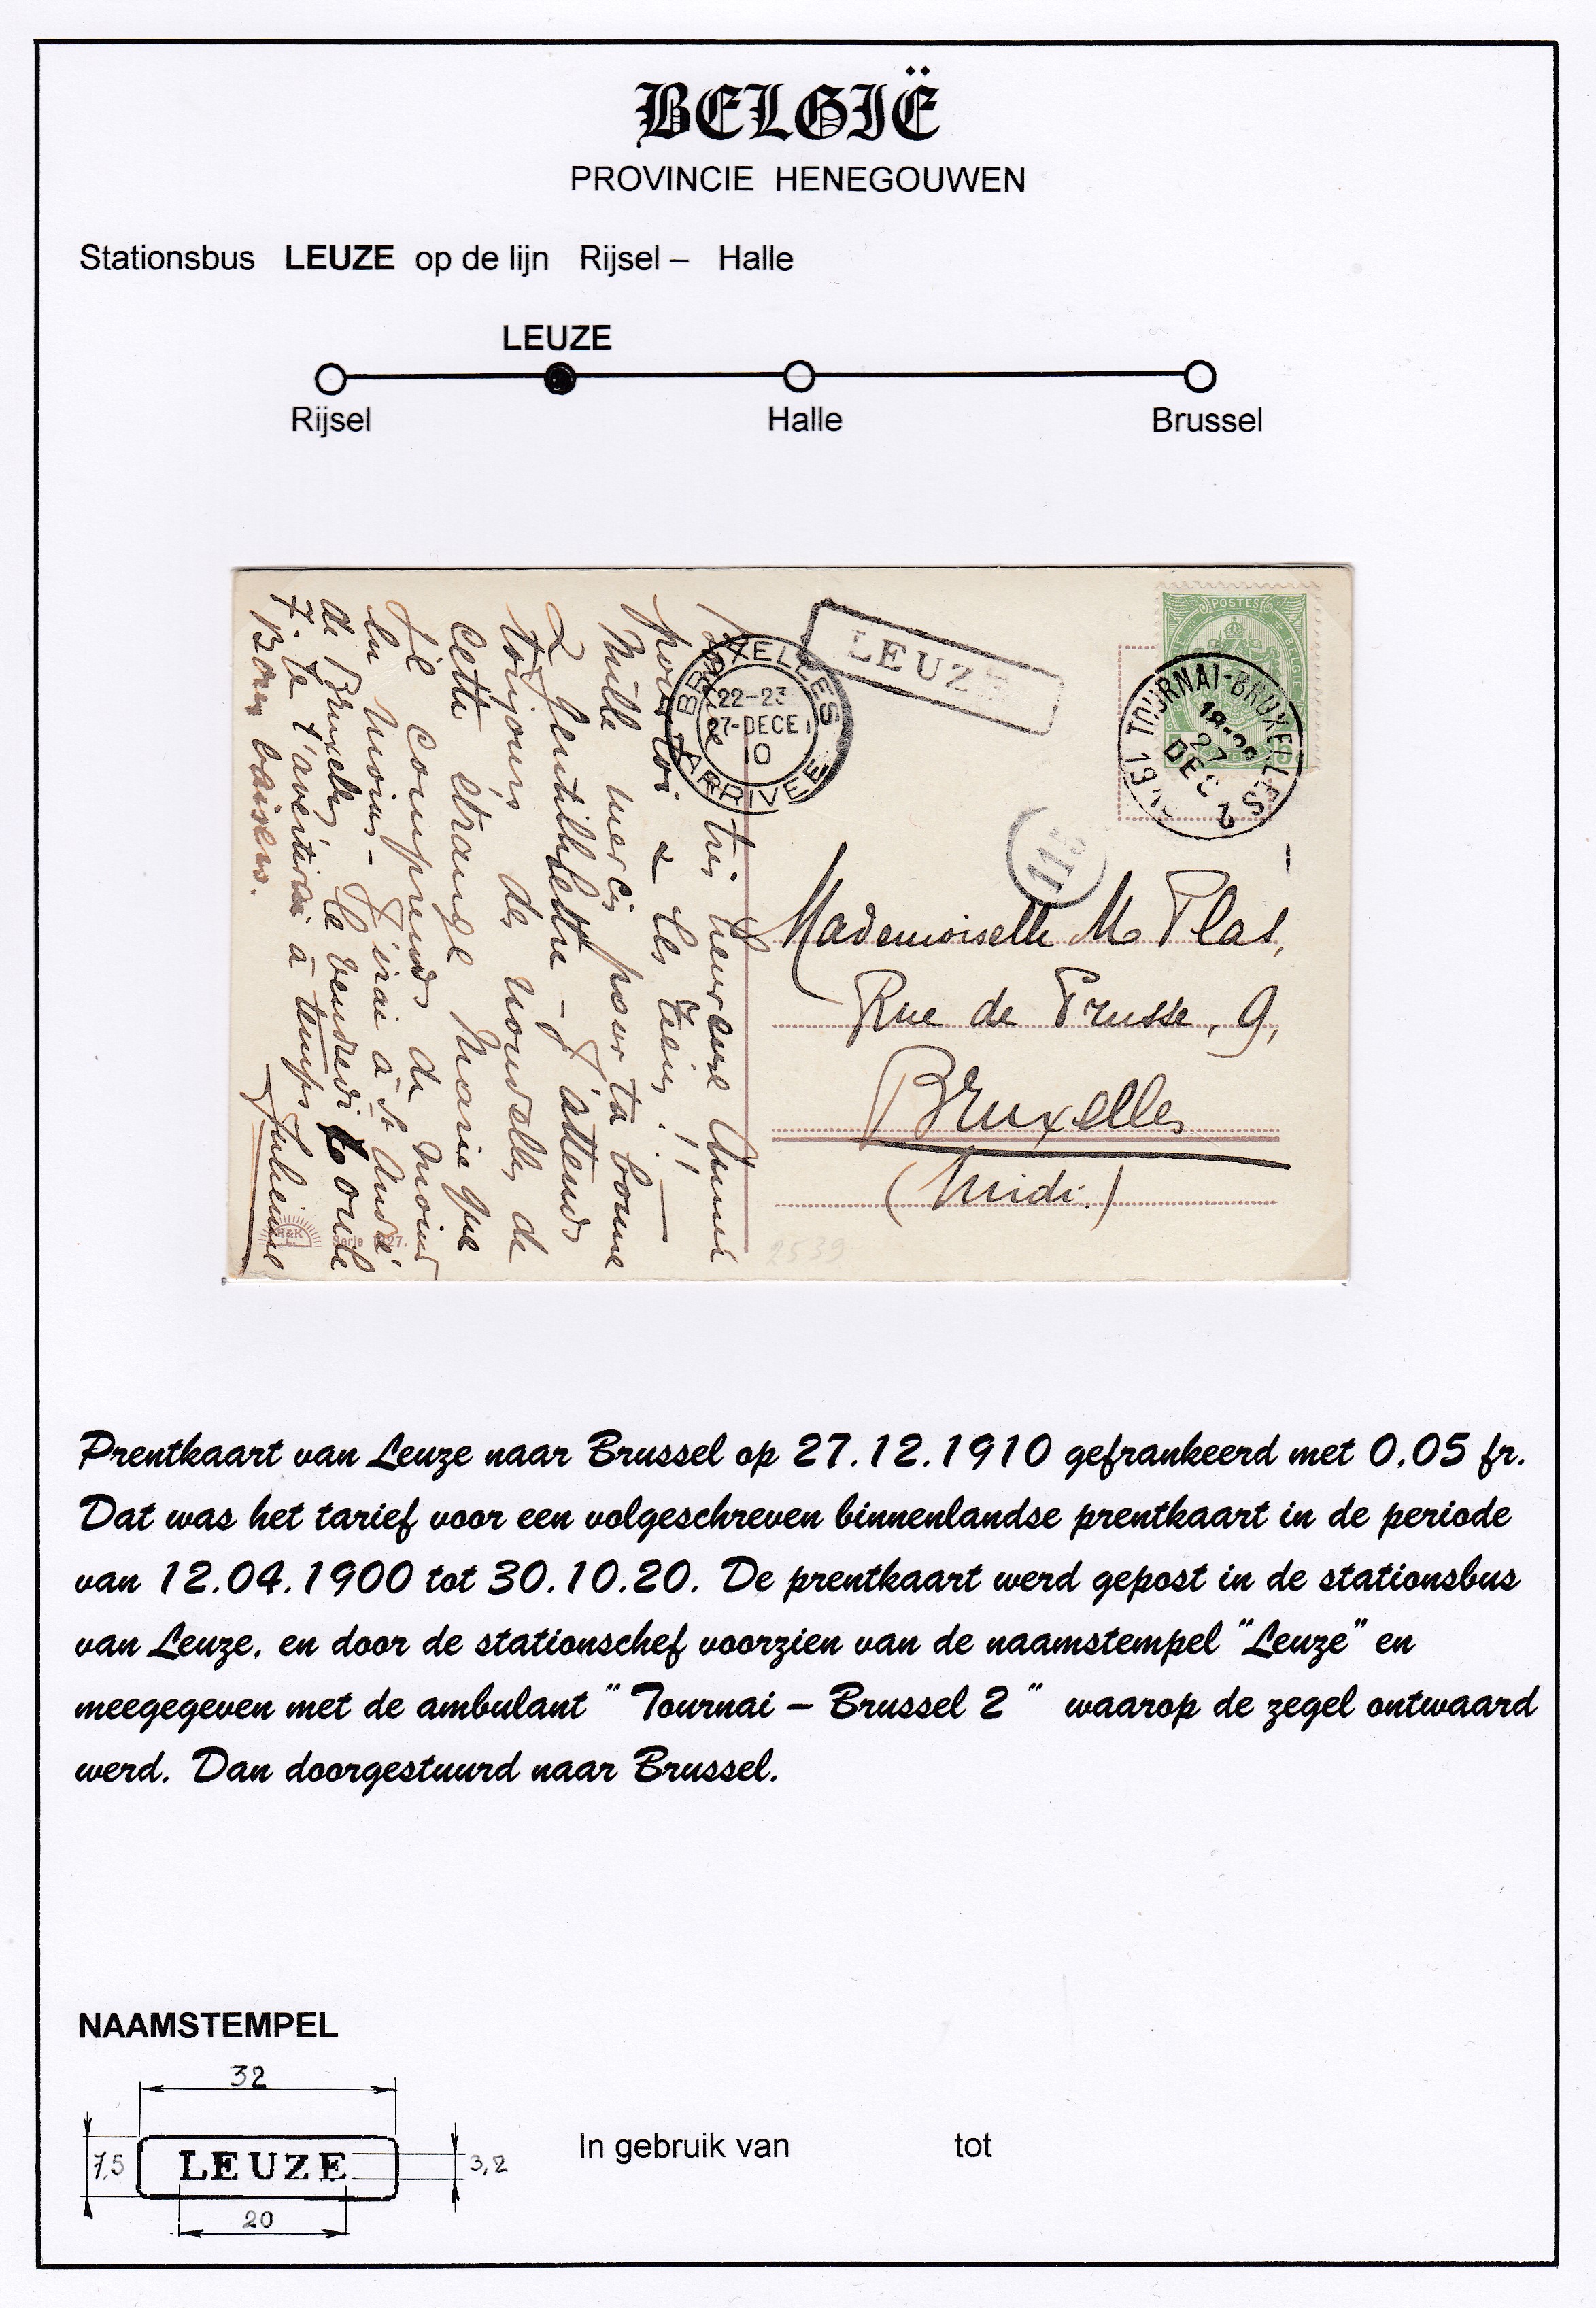 BELGIË
PROVINCIE HENEGOUWEN
Stationsbus LEUZE op de lijn Rijsel – Halle
LEUZE
Rijsel Halle Brussel
POSTES
BELGIE
TOURNAI-BRUXELLES 2
27
DEC
BRUXELLES
22-23
27-DECE
10
ARRIVEE
LEUZE
Mademoiselle M Plas,
Rue de Prusse, 9,
Bruxelles
(Midi.)
2539
très heureuse Année
pour toi & les tiens !!
Mille mercis pour ta bonne
& gentille lettre - J'attends
toujours des nouvelles de
cette étrange Marie que
je comprends de moins
en moins - J'irai à St André
de Bruxelles le vendredi
7. Je t'avertirai à temps
Bons baisers.
Julienne
R&K
L.
Serie
Prentkaart van Leuze naar Brussel op 27.12.1910 gefrankeerd met 0.05 fr.
Dat was het tarief voor een volgeschreven binnenlandse prentkaart in de periode
van 12.04.1900 tot 30.10.20. De prentkaart werd gepost in de stationsbus
van Leuze, en door de stationschef voorzien van de naamstempel "Leuze" en
meegegeven met de ambulant " Tournai – Brussel 2 " waarop de zegel ontwaard
werd. Dan doorgestuurd naar Brussel.
NAAMSTEMPEL
32
7,5 LEUZE 3,2
20
In gebruik van tot